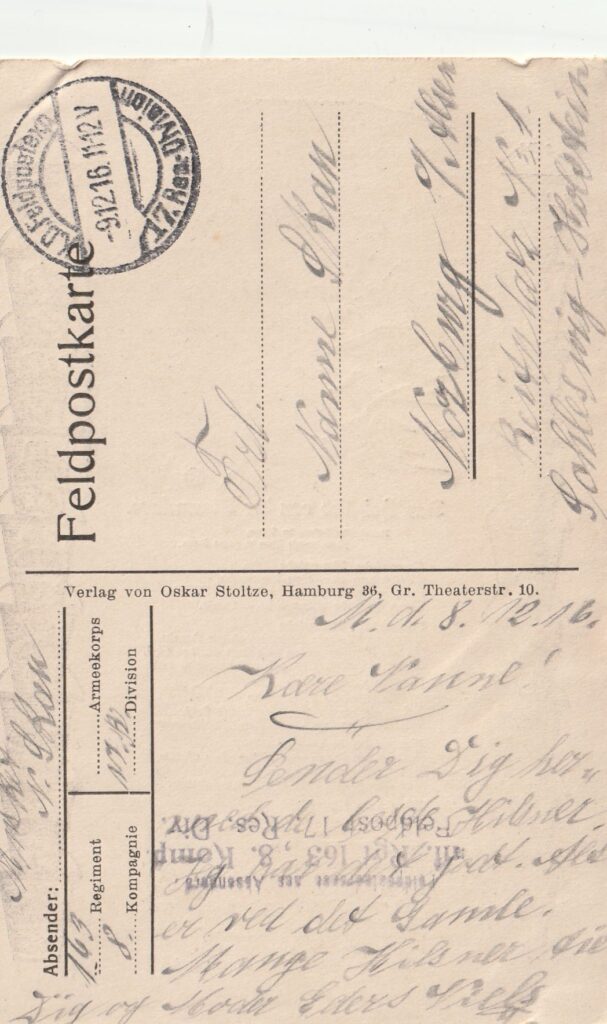 Feldpostkarte
K.D. Feldpostexp.
17. Res.-Division
-9.12.16. 11-12 V
Frl.
Nanne Skau
Norburg
No 1.
Schleswig-Holstein
Verlag von Oskar Stoltze, Hamburg 36, Gr. Theaterstr. 10.
Absender:
N. Skau
Armeekorps
17. R Division
163 Regiment
8 Kompagnie
M. d. 8. 12. 16.
Kære Nanne!
Sender Dig her-
Hilsner.
godt. Alt
er ved det Gamle.
Mange Hilsner til
Dig og Moder Eders Niels
Inf. Rgt 163, 8. Komp.
Feldpost 17. Res. Div.